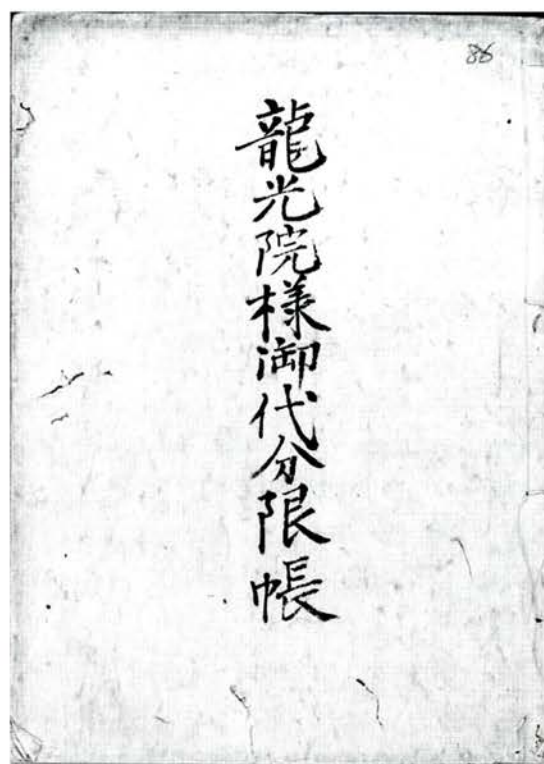 86
龍光院様御代分限帳